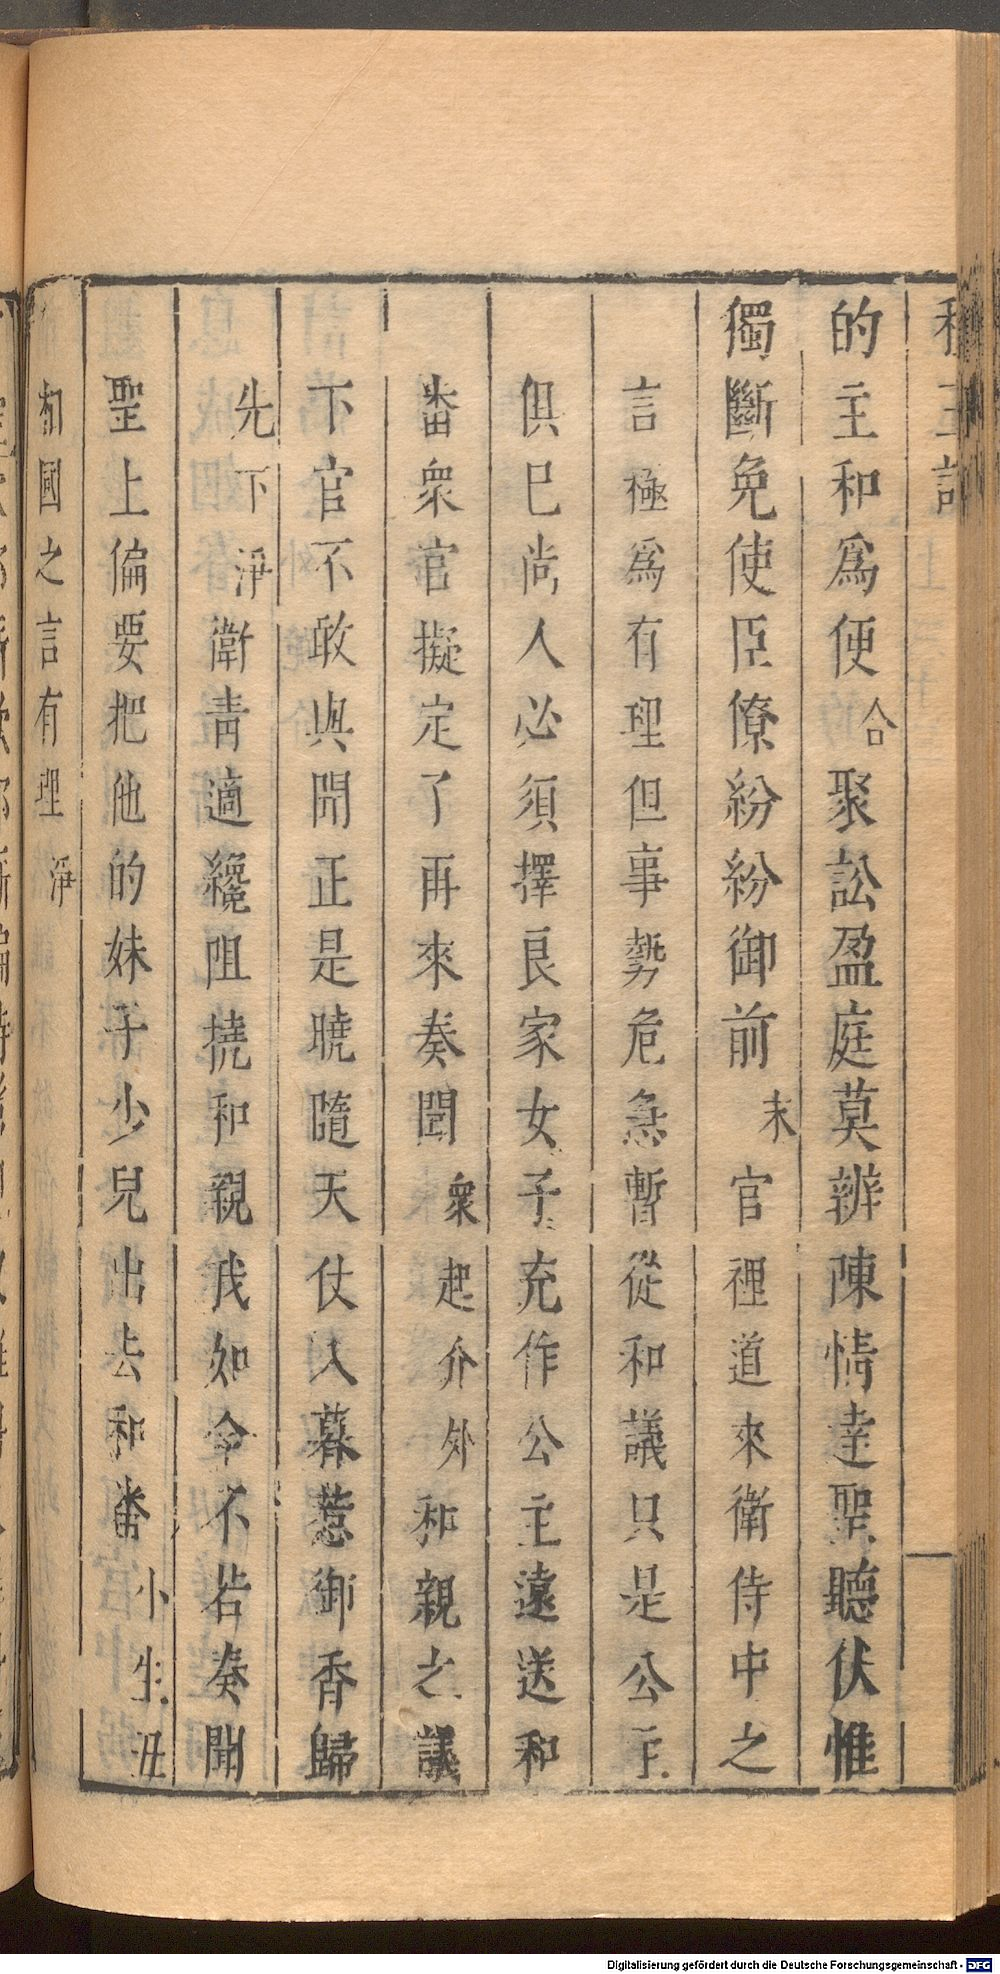 的主和爲便合聚訟盈庭莫辨陳情達聖聽伏惟
獨斷免使臣僚紛紛御前末官裡道來衛侍中之
言極爲有理但事勢危急暫從和議只是公主
俱已尚人必須擇良家女子充作公主遠送和
番衆官擬定了再來奏聞衆起介外和親之議
下官不敢與聞正是曉隨天仗入暮惹御香歸
先下淨衛青適纔阻撓和親我如今不若奏聞
聖上偏要把他的妹子少兒出去和番小生丑
相國之言有理淨
Digitalisierung gefördert durch die Deutsche Forschungsgemeinschaft - DFG